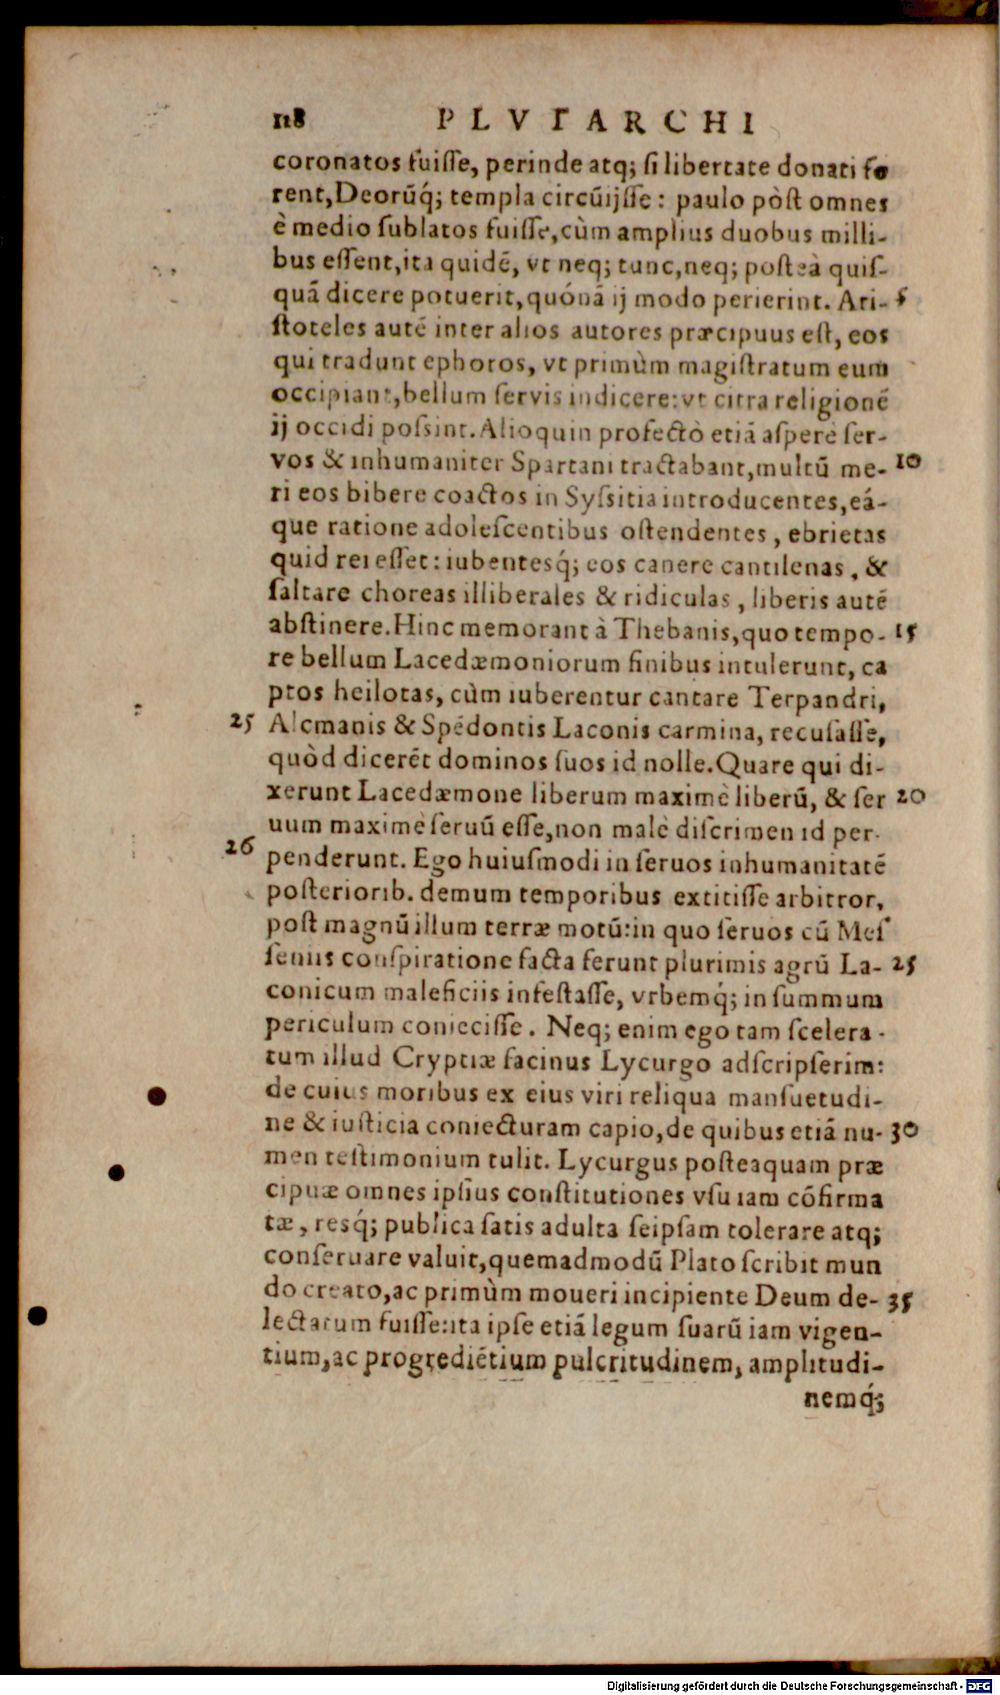 118 PLVTARCHI
coronatos fuiſſe, perinde atq; ſi libertate donati fo
rent, Deorūq́; templa circūijſſe: paulo pòſt omnes
è medio ſublatos fuiſſe, cùm amplius duobus milli-
bus eſſent, ita quidē, vt neq; tunc, neq; poſteà quiſ-
quā dicere potuerit, quónā ij modo perierint. Ari- 5
ſtoteles autē inter alios autores præcipuus eſt, eos
qui tradunt ephoros, vt primùm magiſtratum eum
occipiant, bellum ſervis indicere: vt citra religionē
ij occidi poſsint. Alioquin profectò etiā aſperè ſer-
vos & inhumaniter Spartani tractabant, multū me- 10
ri eos bibere coactos in Syſsitia introducentes, eá-
que ratione adoleſcentibus oſtendentes, ebrietas
quid rei eſſet: iubentesq́; eos canere cantilenas, &
ſaltare choreas illiberales & ridiculas, liberis autē
abſtinere. Hinc memorant à Thebanis, quo tempo- 15
re bellum Lacedæmoniorum finibus intulerunt, ca
ptos heilotas, cùm iuberentur cantare Terpandri,
25 Alcmanis & Spēdontis Laconis carmina, recuſaſſe,
quòd dicerēt dominos ſuos id nolle. Quare qui di-
xerunt Lacedæmone liberum maximè liberū, & ſer 20
uum maximè ſeruū eſſe, non malè diſcrimen id per-
26 penderunt. Ego huiuſmodi in ſeruos inhumanitatē
poſteriorib. demum temporibus extitiſſe arbitror,
poſt magnū illum terræ motū: in quo ſeruos cū Meſ
ſeniis conſpiratione facta ferunt plurimis agrū La- 25
conicum maleficiis infeſtaſſe, vrbemq́; in ſummum
periculum conieciſſe. Neq; enim ego tam ſcelera-
tum illud Cryptiæ facinus Lycurgo adſcripſerim:
de cuius moribus ex eius viri reliqua manſuetudi-
ne & iuſticia coniecturam capio, de quibus etiā nu- 30
men teſtimonium tulit. Lycurgus poſteaquam præ
cipuæ omnes ipſius conſtitutiones vſu iam cōfirma
tæ, resq́; publica ſatis adulta ſeipſam tolerare atq;
conſeruare valuit, quemadmodū Plato ſcribit mun
do creato, ac primùm moueri incipiente Deum de- 35
lectatum fuiſſe: ita ipſe etiā legum ſuarū iam vigen-
tium, ac progrediētium pulcritudinem, amplitudi-
nemq́;
Digitalisierung gefördert durch die Deutsche Forschungsgemeinschaft - DFG